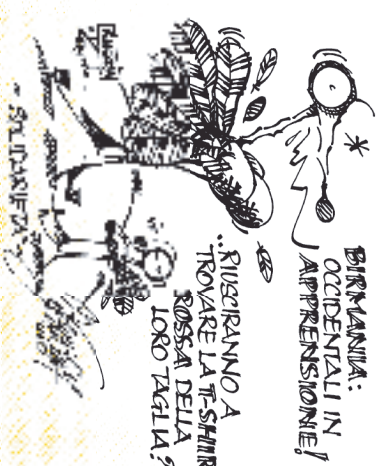 BIRMANIA:
OCCIDENTALI IN
APPRENSIONE!
..RIUSCIRANNO A
TROVARE LA T-SHIR
ROSSA DELLA
LORO TAGLIA?
- SOLIDARIETÀ -